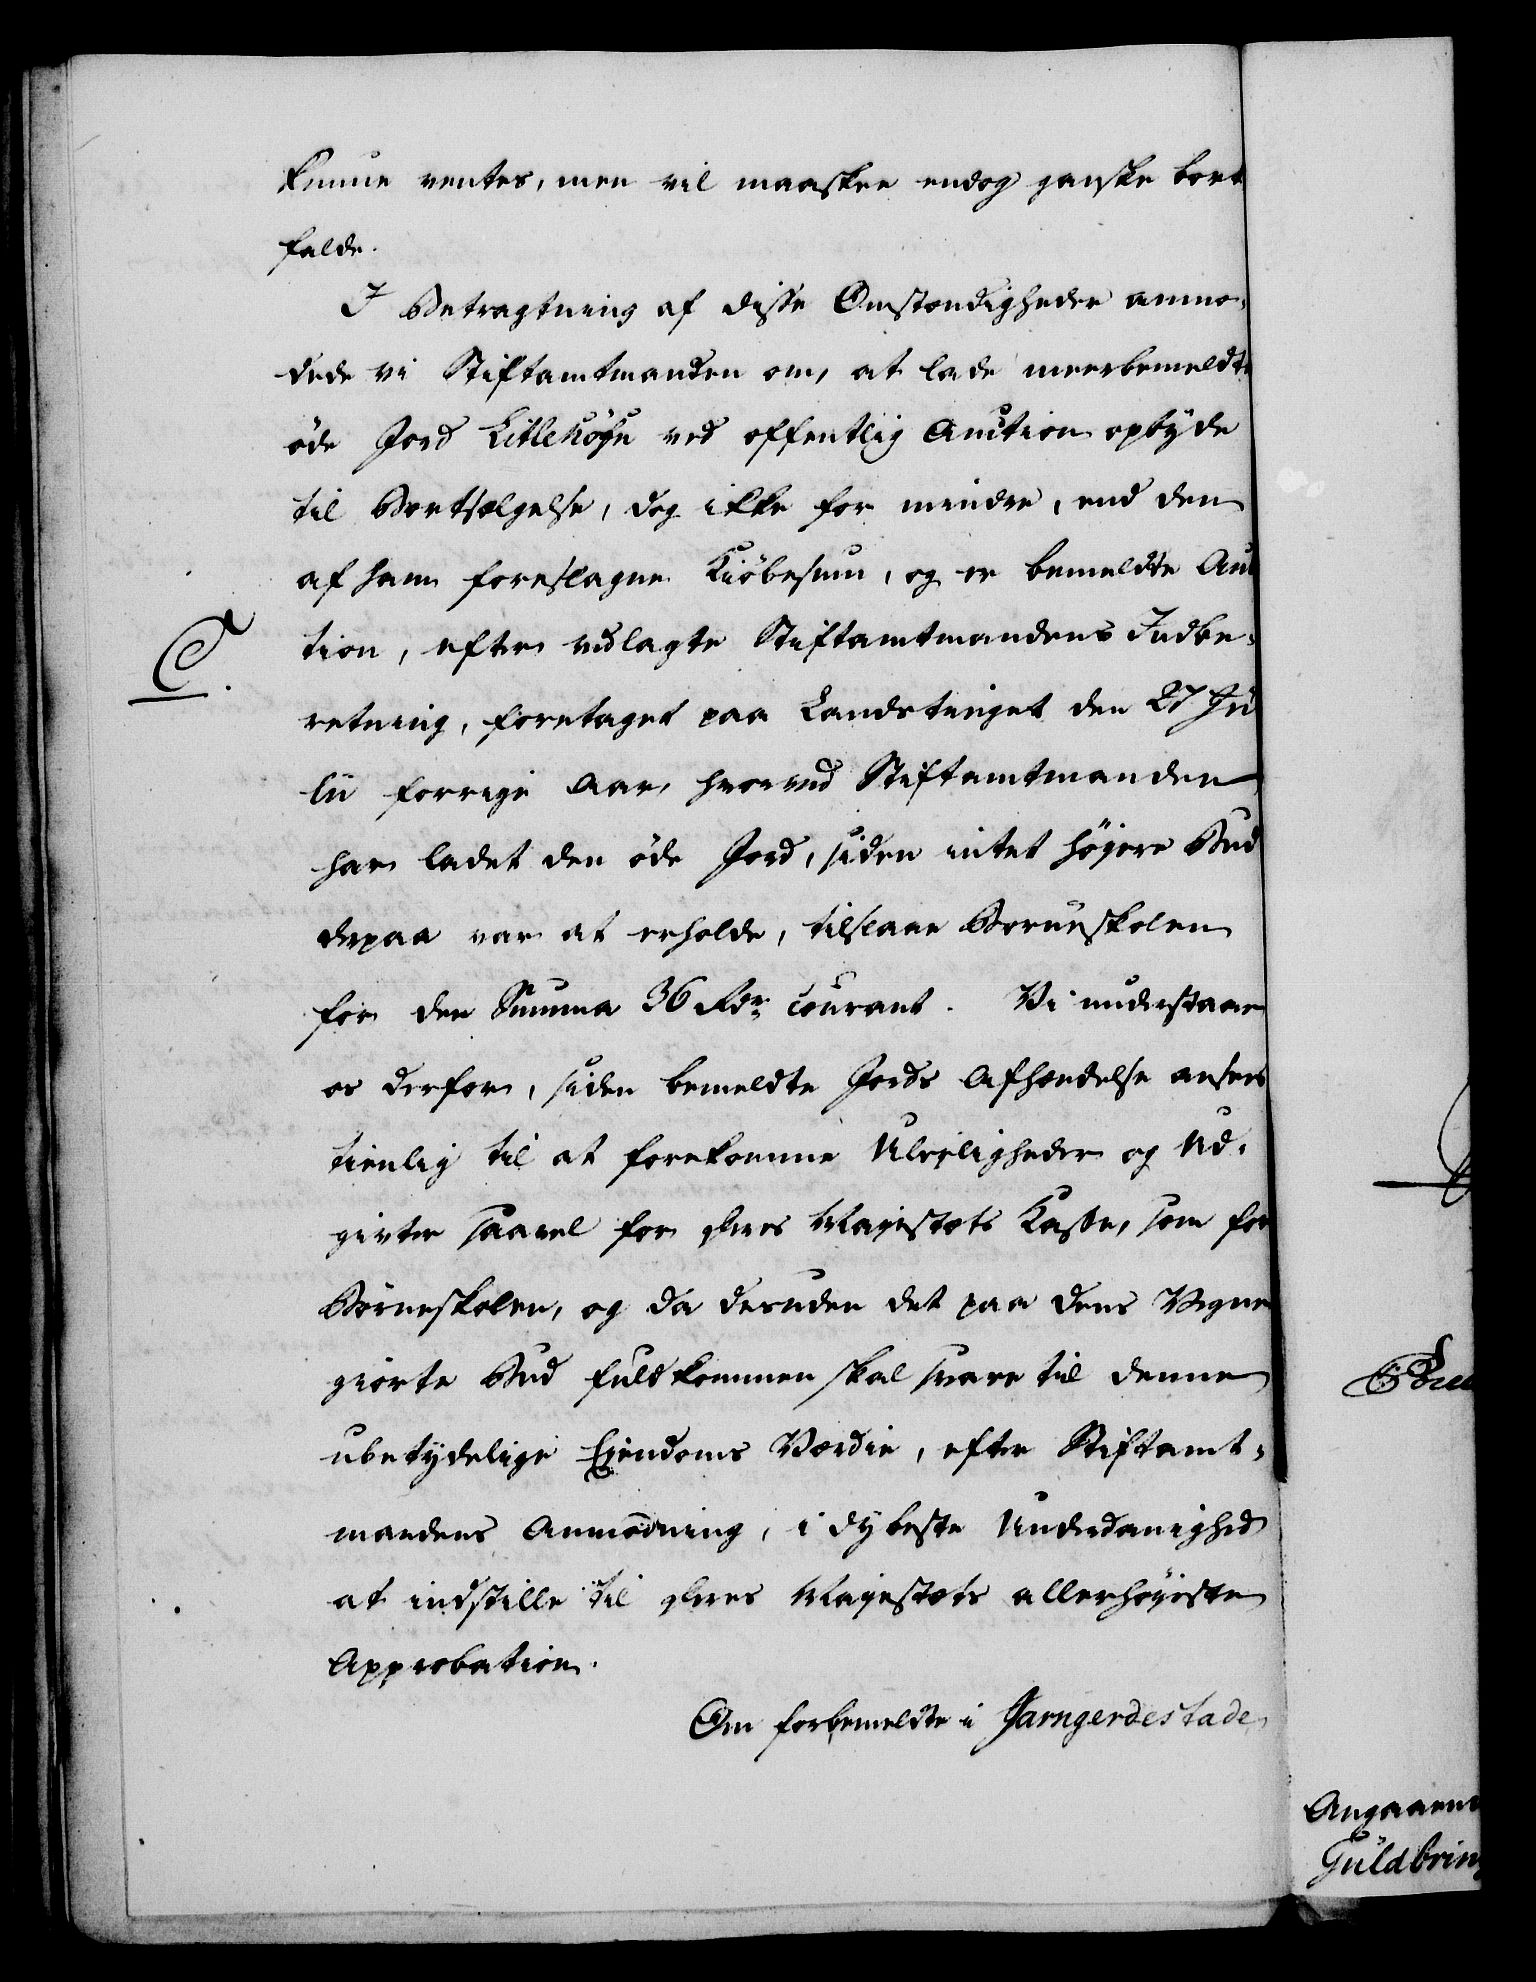 kunne ventes, men vil maaskee endog ganske bort
falde.
I Betragtning af disse Omstændigheder anmo-
dede vi Stiftamtmanden om, at lade meerbemeldte
öde Jord Litlehöfn ved offentlig Auction opbyde
til Bortsælgelse, dog ikke for mindre, end den
af ham foreslagne Kiöbesum, og er bemeldte Auc
tion, efter vedlagte Stiftamtmandens Indbe-
C.
retning, foretaget paa Landstinget den 27 Ju
lii forrige Aar, hvorved Stiftamtmanden
har ladet den öde Jord, siden intet höyere Bud
derpaa var at erholde, tilslaae Börneskolen
for den Summa 36 Rdr courant. Vi understaae
os derfor, siden bemeldte Jords Afhændelse ansees
tienlig til at forekomme Uleyligheder og Ud-
givter saavel for Deres Majestæts Kasse, som for
Börneskolen, og da desuden det paa dens Vegne
giorte Bud fuldkommen skal svare til denne
ubetydelige Ejendoms Værdie, efter Stiftamt-
mandens Anmodning, i dybeste Underdanighed
at indstille til Deres Majestæts allerhöyeste
Approbation.
Om forbemeldte i Jarngerdestade
Angaaen
Guldbrin